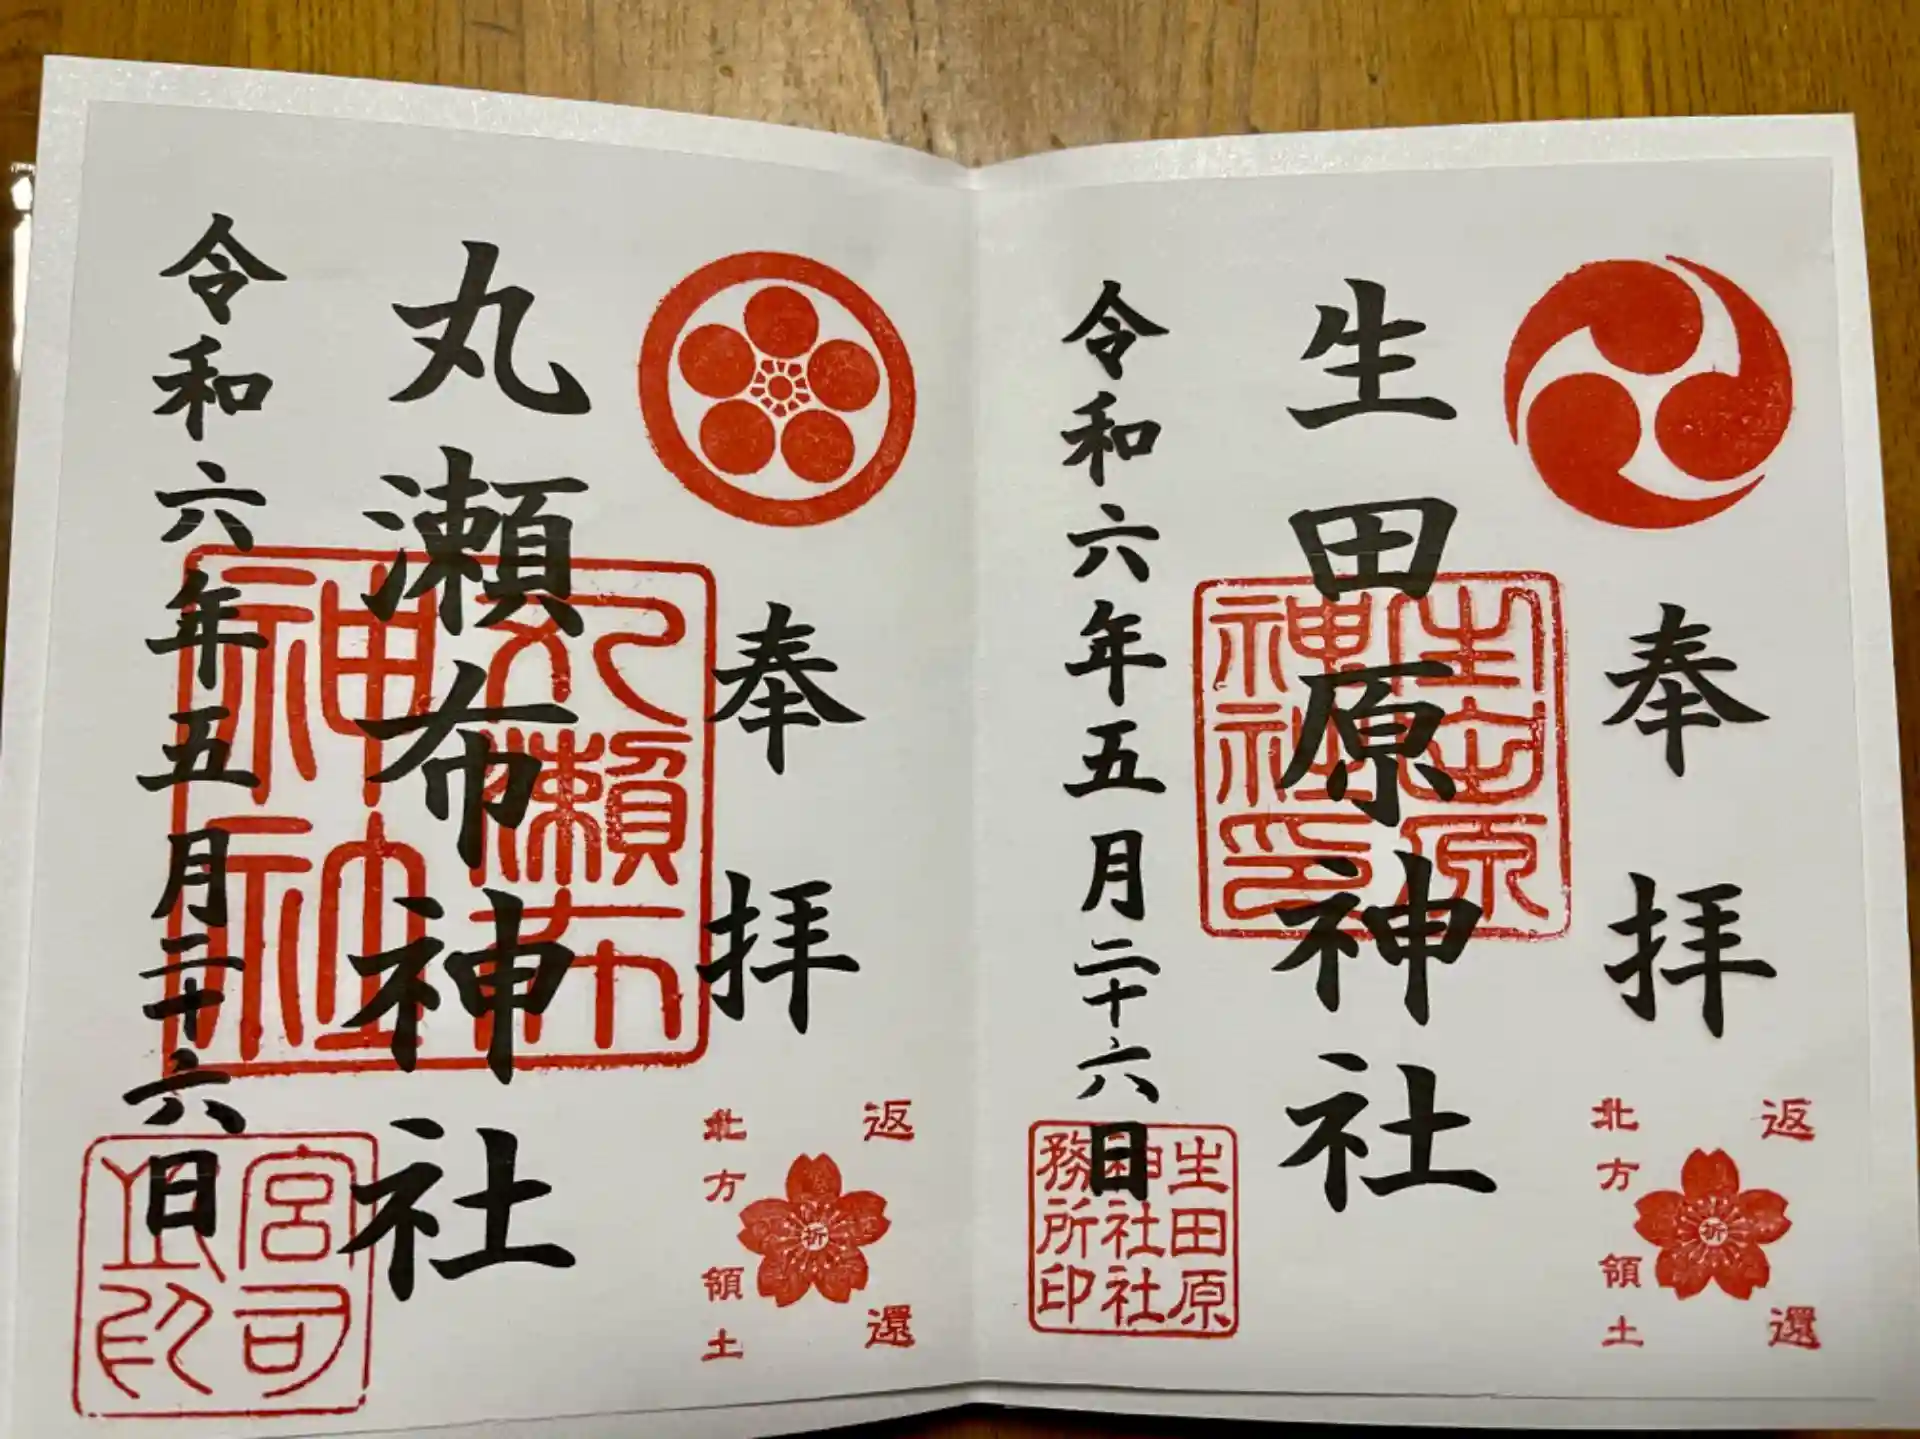 奉拝
生田原神社
令和六年五月二十六日
生田原
神社印
生田原
神社社
務所印
返還
北方領土
祈
奉拝
丸瀬布神社
令和六年五月二十六日
丸瀬布
神社
宮司
之印
返還
北方領土
祈